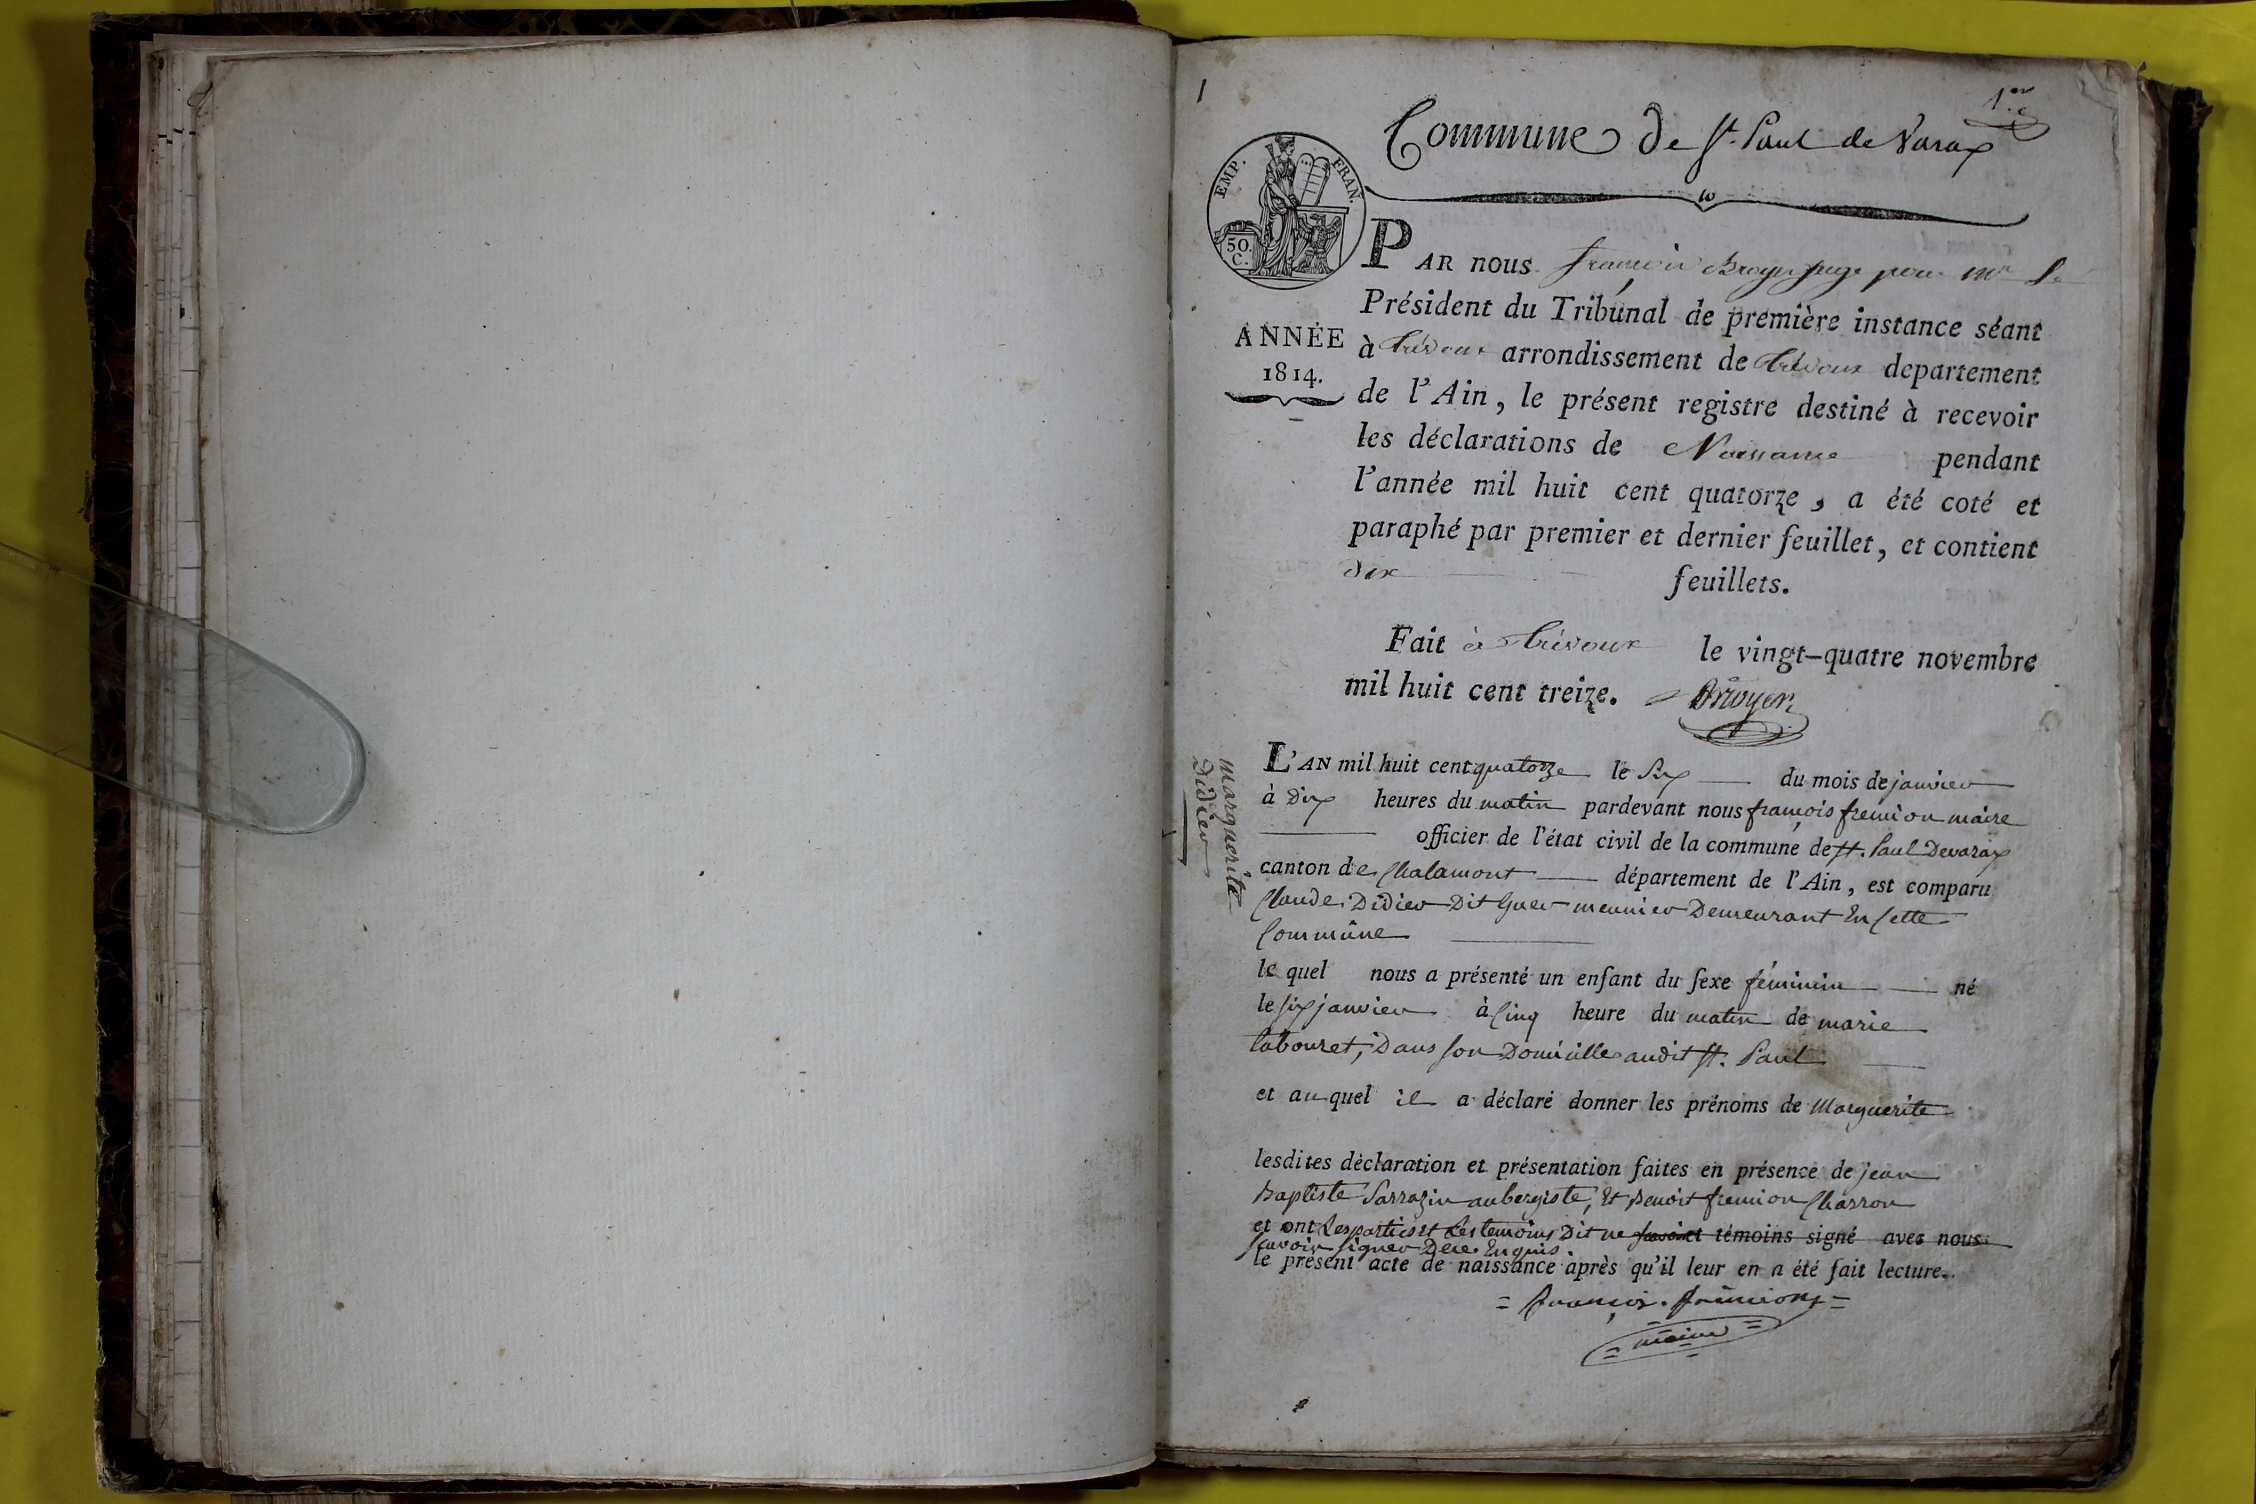 1
1.er
Commune de St. Paul de Varax
EMP. FRAN.
50.
C.
ANNÉE
1814.
PAR nous françois Broyer juge pour Mr Le
Président du Tribunal de première instance séant
à Trévoux arrondissement de Trévoux departement
de l'Ain, le présent registre destiné à recevoir
les déclarations de Naissance pendant
l'année mil huit cent quatorze, a été coté et
paraphé par premier et dernier feuillet, et contient
dix feuillets.
Fait à Trévoux le vingt-quatre novembre
mil huit cent treize. Broyer
marguerite
Didier
L'AN mil huit cent quatorze le Six du mois de janvier
à Dix heures du matin pardevant nous françois fremion maire
officier de l'état civil de la commune de St. Paul Devarax
canton de Chalamont département de l'Ain, est comparu
Claude Didier Dit Guer meunier Demeurant En Cette
Commune
le quel nous a présenté un enfant du sexe féminin né
le six janvier à Cinq heure du matin de marie
labouret, Dans son Domicille audit St. Paul
et au quel il a déclaré donner les prénoms de Marguerite
lesdites déclaration et présentation faites en présence de jean
Baptiste Sarrazin aubergiste, Et Benoit fremion Charron
et ont Les parties et Les temoins Dit ne témoins signé avec nous
Scavoir signer De ce Enquis.
le présent acte de naissance après qu'il leur en a été fait lecture.
= françois . fremion =
= maire =